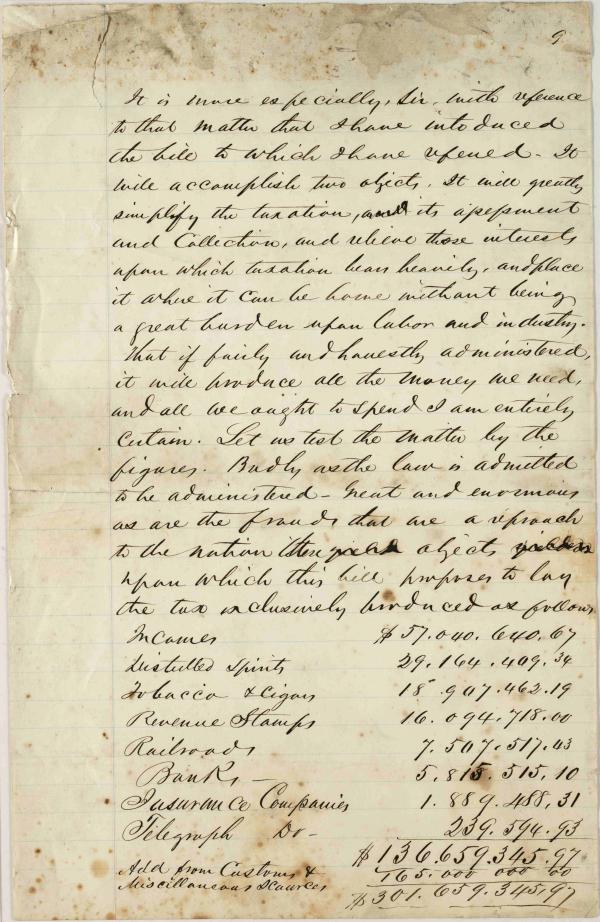 9
It is more especially, Sir, with reference
to that matter that I have introduced
the bill to which I have refered - It
will accomplish two objects. It will greatly
simplify the taxation, and its assessment
and Collection, and relieve those interests
upon which taxation bears heavily, and place
it where it can be borne without being
a great burden upon labor and industry.
That if fairly and honestly administered,
it will produce all the money we need,
and all we ought to spend I am entirely
certain. Let us test the matter by the
figures. Badly as the law is admitted
to be administered - Great and enormous
as are the frauds that are a reproach
to the nation these objects
upon which this bill proposes to lay
the tax exclusively produced as follows
Incomes $57.040.640.67
Distilled Spirits 29.164.409.34
Tobacco & Cigars 18.907.462.19
Revenue Stamps 16.094.718.00
Railroads 7.507.517.03
Banks - 5.815.515.10
Insurance Companies 1.889.488.31
Telegraph Do - 239.594.93
$136.659.345.97
Add from Customs &
Miscellaneous Sources 165.000 000 00
$301.659.345.97